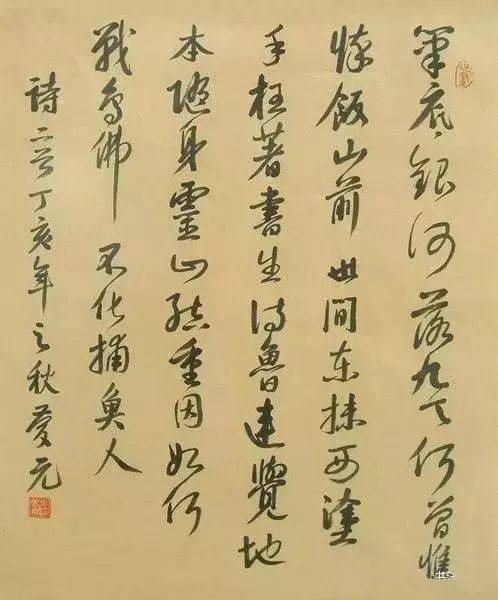 筆底銀河落九天何曾憔
悴飯山前世間東抹西塗
手枉著書生待魯連覺地
本隨身靈山結重因如何
戰鳥佛不化捕魚人
詩二首丁亥年之秋元